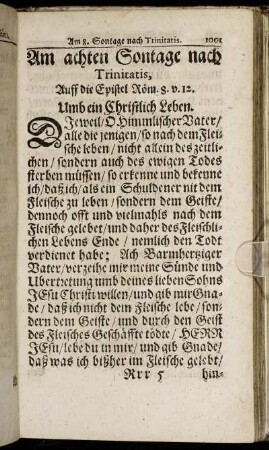 Am 8. Sontage nach Trinitatis. 1001
Am achten Sontage nach
Trinitatis,
Auff die Epistel Röm. 8. v. 12.
Umb ein Christlich Leben.
DJeweil / O Himmlischer Vater /
alle die jenigen / so nach dem Flei-
sche leben / nicht allein des zeitli-
chen / sondern auch des ewigen Todes
sterben müssen / so erkenne und bekenne
ich / daß ich / als ein Schuldener nit dem
Fleische zu leben / sondern dem Geiste /
dennoch offt und vielmahls nach dem
Fleische gelebet / und daher des Fleischli-
chen Lebens Ende / nemlich den Todt
verdienet habe: Ach Barmhertziger
Vater / verzeihe mir meine Sünde und
Ubertretung umb deines lieben Sohns
JEsu Christi willen / und gib mir Gna-
de / daß ich nicht dem Fleische lebe / son-
dern dem Geiste / und durch den Geist
des Fleisches Geschäffte tödte / HERR
JEsu / lebe du in mir / und gib Gnade /
daß was ich bißher im Fleische gelebt /
Rrr 5 hin-